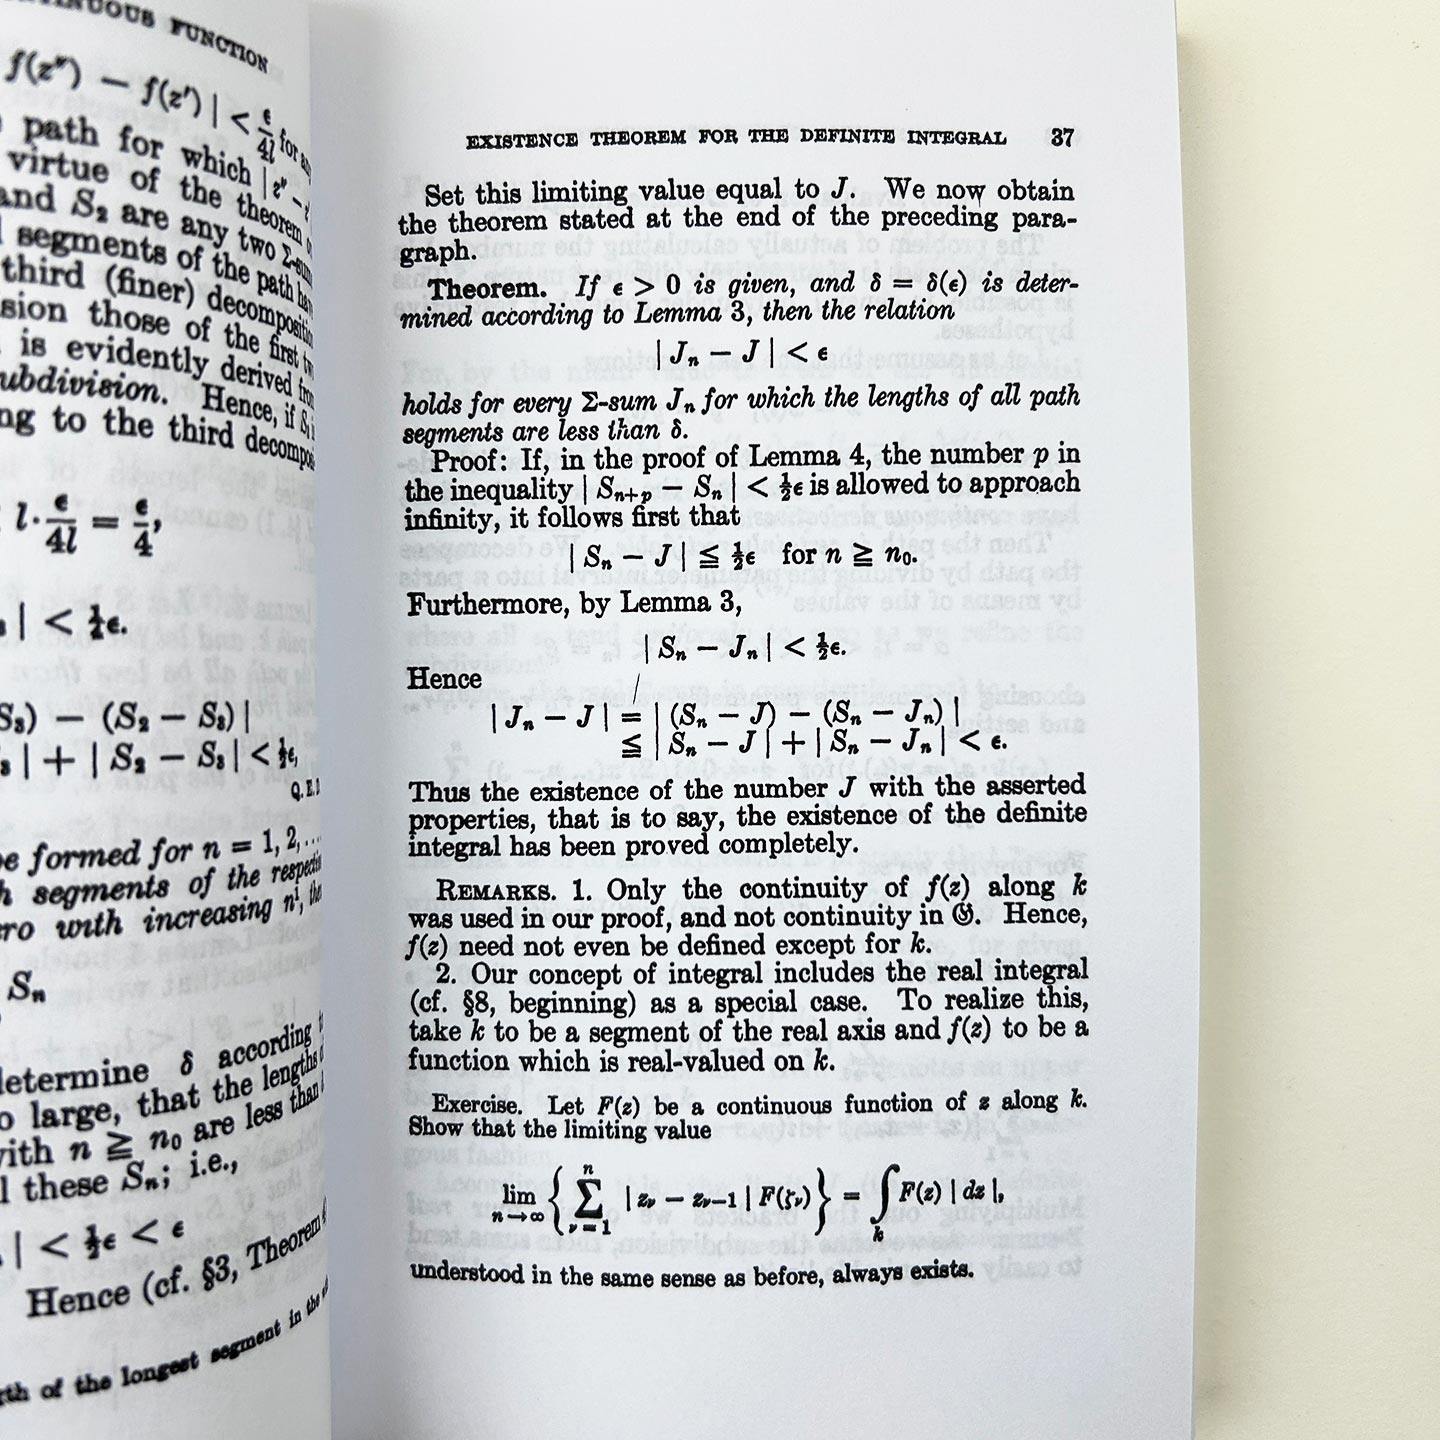 TINUOUS FUNCTION
f(z″) − f(z′) | < ε/4l for any
path for which | z″ − z
virtue of the theorem
and S₂ are any two Σ-sum
segments of the path have
third (finer) decomposition
sion those of the first two
is evidently derived from
ubdivision. Hence, if S₃ i
ng to the third decompos
l·ε/4l = ε/4,
| < ½ε.
S₃) − (S₂ − S₃) |
₃ | + | S₂ − S₃ | < ½ε,
Q.E.D
be formed for n = 1, 2, ...
h segments of the respecti
ero with increasing n¹, the
Sₙ
determine δ according t
o large, that the lengths o
with n ≧ n₀ are less than
l these Sₙ; i.e.,
| < ½ε < ε
Hence (cf. §3, Theorem 4
gth of the longest segment in the
EXISTENCE THEOREM FOR THE DEFINITE INTEGRAL 37
Set this limiting value equal to J. We now obtain
the theorem stated at the end of the preceding para-
graph.
Theorem. If ε > 0 is given, and δ = δ(ε) is deter-
mined according to Lemma 3, then the relation
| Jₙ − J | < ε
holds for every Σ-sum Jₙ for which the lengths of all path
segments are less than δ.
Proof: If, in the proof of Lemma 4, the number p in
the inequality | Sₙ₊ₚ − Sₙ | < ½ε is allowed to approach
infinity, it follows first that
| Sₙ − J | ≦ ½ε for n ≧ n₀.
Furthermore, by Lemma 3,
| Sₙ − Jₙ | < ½ε.
Hence
| Jₙ − J | = | (Sₙ − J) − (Sₙ − Jₙ) |
≦ | Sₙ − J | + | Sₙ − Jₙ | < ε.
Thus the existence of the number J with the asserted
properties, that is to say, the existence of the definite
integral has been proved completely.
REMARKS. 1. Only the continuity of f(z) along k
was used in our proof, and not continuity in 𝔊. Hence,
f(z) need not even be defined except for k.
2. Our concept of integral includes the real integral
(cf. §8, beginning) as a special case. To realize this,
take k to be a segment of the real axis and f(z) to be a
function which is real-valued on k.
Exercise. Let F(z) be a continuous function of z along k.
Show that the limiting value
lim n→∞ { Σ ν=1 n | zν − zν−1 | F(ζν) } = ∫k F(z) | dz |,
understood in the same sense as before, always exists.